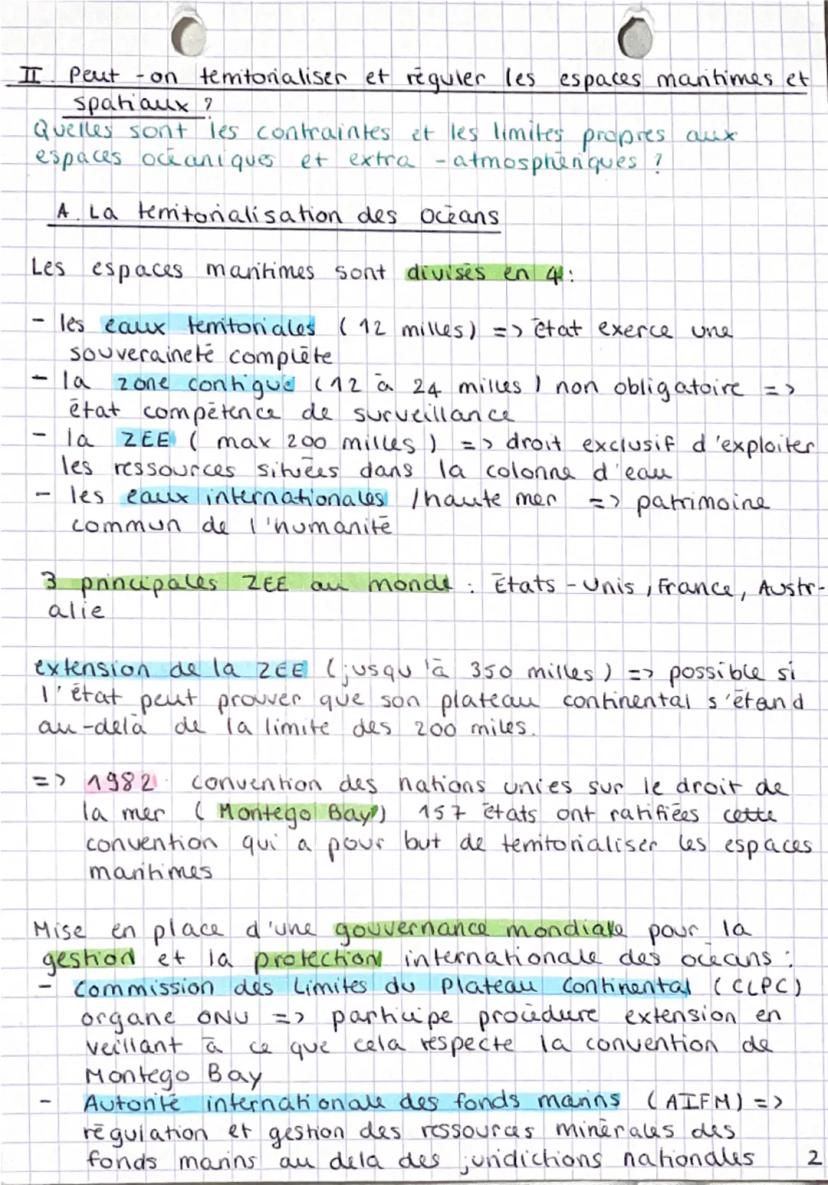 II. Peut-on territorialiser et réguler les espaces maritimes et
spatiaux ?
Quelles sont les contraintes et les limites propres aux
espaces océaniques et extra-atmosphériques ?
A. La territorialisation des océans
Les espaces maritimes sont divisés en 4 :
- les eaux territoriales (12 milles) => état exerce une
souveraineté complète
- la zone contiguë (12 à 24 milles) non obligatoire =>
état compétence de surveillance
- la ZEE (max 200 milles) => droit exclusif d'exploiter
les ressources situées dans la colonne d'eau
- les eaux internationales /haute mer => patrimoine
commun de l'humanité
3 principales ZEE au monde : États-Unis, France, Austr-
alie
extension de la ZEE (jusqu'à 350 milles) => possible si
l'état peut prouver que son plateau continental s'étend
au-delà de la limite des 200 miles.
=> 1982 convention des nations unies sur le droit de
la mer (Montego Bay) 157 états ont ratifiées cette
convention qui a pour but de territorialiser les espaces
maritimes
Mise en place d'une gouvernance mondiale pour la
gestion et la protection internationale des océans :
- Commission des Limites du Plateau Continental (CLPC)
organe ONU => participe procédure extension en
veillant à ce que cela respecte la convention de
Montego Bay
- Autorité internationale des fonds marins (AIFM) =>
régulation et gestion des ressources minérales des
fonds marins au delà des juridictions nationales 2